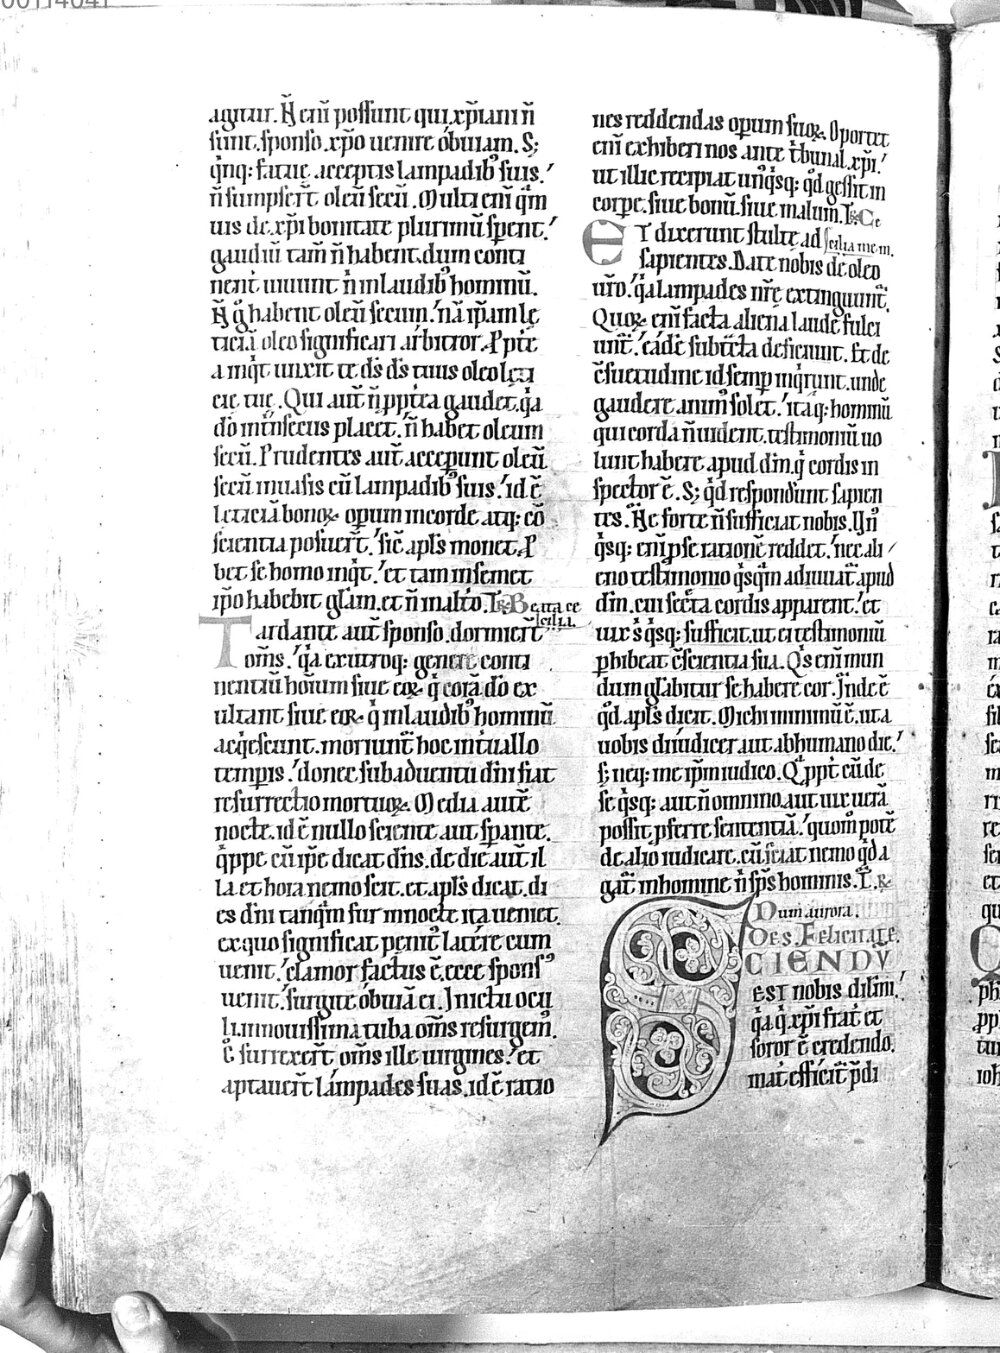 agitur. Ñ eni̅ possunt qui xp̅iani n̅
sunt. sponso xp̅o uenire obuiam. S;
q̅nq; fatuę acceptis lampadib; suis.'
n̅ sumpser̅t oleu̅ secu̅. Multi eni̅ q̅m
uis de xp̅i bonitate plurimu̅ sp̅ent.'
gaudiu̅ tam̅ n̅ habent. dum conti
nent̅ uiuunt n̅ in laudib; hominu̅.
Ñ g̊ habent oleu̅ secum.' na̅ ip̅am lę
ticia̅ oleo significari arbitror. P̱pt̅e
a inqt̅ unxit te d̅s d̅s tuus oleo lęti
cię tuę. Qui aut̅ n̅ p̱pt̅ea gaudet. q̅a
d̅o int̅nsecus placet.' n̅ habet oleum
secu̅. Prudentes aut̅ accep̱unt oleu̅
secu̅ in uasis cu̅ lampadib; suis.' id e̅
leticia̅ bonoꝝ opum in corde atq; co̅
scientia posuer̅t.' sic̅ apl̅s monet. P̱
bet se homo inq̅t.' et tam̅ in semet
ip̅o habebit gl̅am. et n̅ in alt̅o. T̅. R̅. Beata ce
cilia.
Tardante aut̅ sponso. dormier̅t
om̅s.' q̅a ex utroq; genere conti
nentiu̅ ho̅ium siue eoꝝ q̅ cora̅ d̅o ex
ultant siue eoꝝ q̅ in laudib; hominu̅
acq̅escunt. moriunt̅ hoc int̅uallo
temp̱is.' donec sub aduentu d̅ni fiat
resurrectio mortuoꝝ. Media aute̅
nocte. id e̅ nullo sciente aut sp̱ante.
q̅ppe cu̅ ip̅e dicat d̅ns. de die aut̅ il
la et hora nemo scit. et apl̅s dicat. di
es d̅ni tanq̅m fur in nocte ita ueniet.
ex quo significat penit̅ latere cum
uenit.' clamor factus e̅. ecce spons᾽
uenit.' surgite obuia̅ ei. In ictu ocu
li. in nouissima tuba om̅s resurgem̅.
G̊ surrexer̅t om̅s ille uirgines.' et
aptauer̅t lampades suas. id e̅ ratio
nes reddendas op̱um suoꝝ. Oportet
eni̅ exhiberi nos ante t̅bunal xp̅i.'
ut illic recipiat un̅q̅sq; q̅d gessit in
corpe. siue bonu̅. siue malum. T̅. R̅. Ce
cilia me m.
Et dixerunt stulte ad
sapientes. Date nobis de oleo
ur̅o.' q̅a lampades nr̅e extinguunt̅.
Quoꝝ eni̅ facta aliena laude fulci
unt̅.' eade̅ subt̅cta deficiunt. Et de
c̅suetudine id semp̱ inq̅runt. unde
gaudere anim᾽ solet.' itaq; hominu̅
qui corda n̅ uident. testimoniu̅ uo
lunt habere apud d̅m. q̅ cordis in
spector e̅. S; q̅d respondunt sapien
tes. Ñe forte n̅ sufficiat nobis. Un᾽
q̅sq; eni̅ p̱ se ratione̅ reddet.' nec ali
eno testimonio q̅sq̅m adiuuat̅ apud
d̅m. cui sec̅ta cordis apparent.' et
uix s̅ q̅sq; sufficit. ut ei testimoniu̅
p̱hibeat c̅scientia sua. Q̅s eni̅ mun
dum gl̅abitur se habere cor. Inde e̅
q̅d apl̅s dicit. Michi minimu̅ e̅. ut a
uobis diiudicer aut ab humano die.'
s; neq; me ip̅m iudico. Q̅ppt̅ cu̅ de
se q̅sq; aut n̅ omnino. aut uix uera̅
possit p̱ferre sententia̅.' quom̊ pote̅
de alio iudicare. cu̅ sciat nemo q̅d a
gat̅ in homine n̅ sp̅s hominis. T̅. R̅.
Dum aurora.
Oes. Felicitate.
SCIENDV̅
EST nobis dil̅mi.'
q̅a q̅ xp̅i frat̅ et
soror e̅ credendo.
mat̅ efficit̅ p̱di